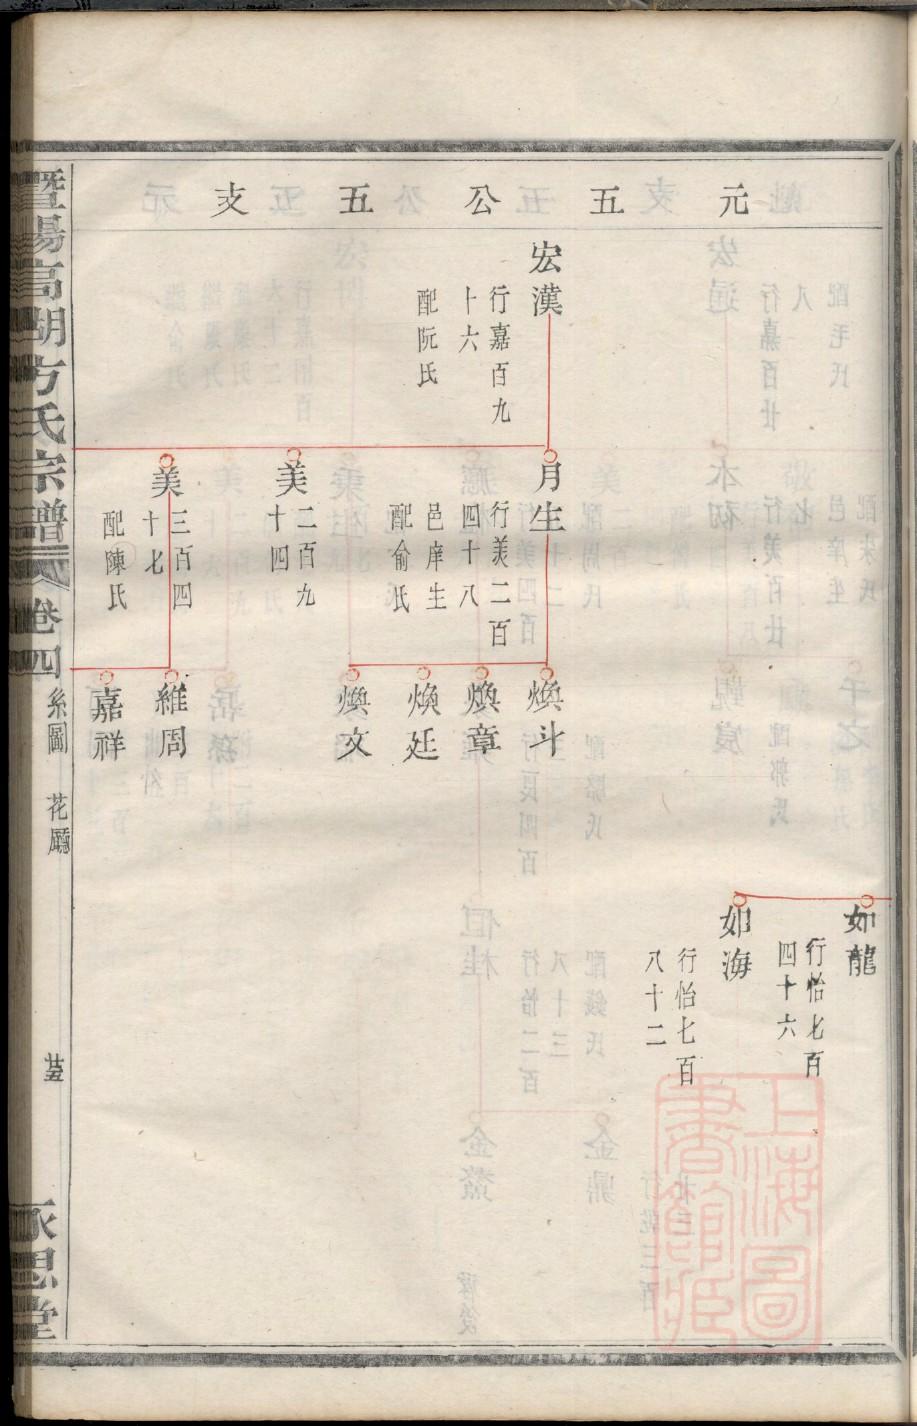 元五公五支
如龍
行怡七百
四十六
如海
行怡七百
八十二
宏漢
行嘉百九
十六
配阮氏
月生
行美二百
四十八
邑庠生
配俞氏
美
二百九
十四
美
三百四
十七
配陳氏
煥斗
煥章
煥廷
煥文
維周
嘉祥
暨陽高湖方氏宗譜
卷四
系圖
花廳
永思堂
上海圖書館藏